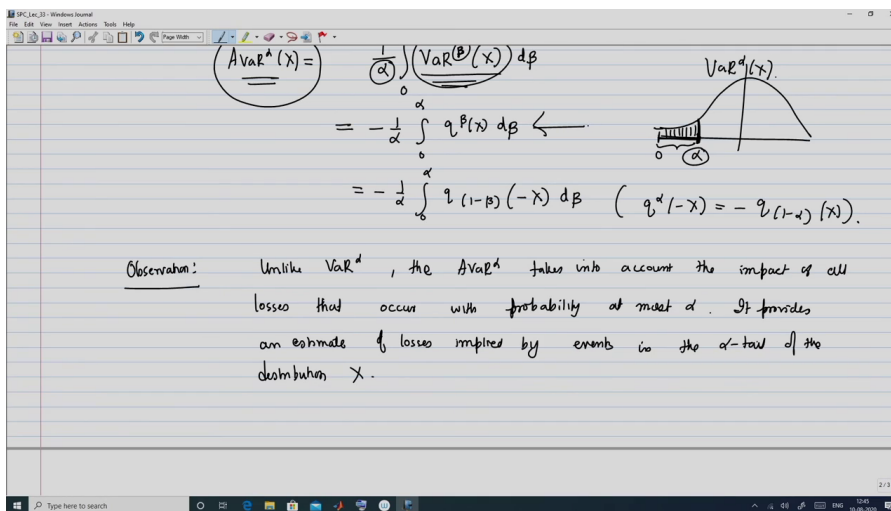 SPC_Lec_33 - Windows Journal
File Edit View Insert Actions Tools Help
Page Width
AVaR^α(X) = 1/α ∫_0 (VaR^(β)(X)) dβ
VaR^α(X).
= - 1/α ∫_0^α q^β(X) dβ ←
0 α
= - 1/α ∫_0^α q_(1-β)(-X) dβ ( q^α(-X) = - q_(1-α)(X)).
Observation: Unlike VaR^α, the AVaR^α takes into account the impact of all
losses that occur with probability at most α. It provides
an estimate of losses implied by events in the α-tail of the
distribution X.
2 / 3
Type here to search
ENG
12:45
10-08-2020